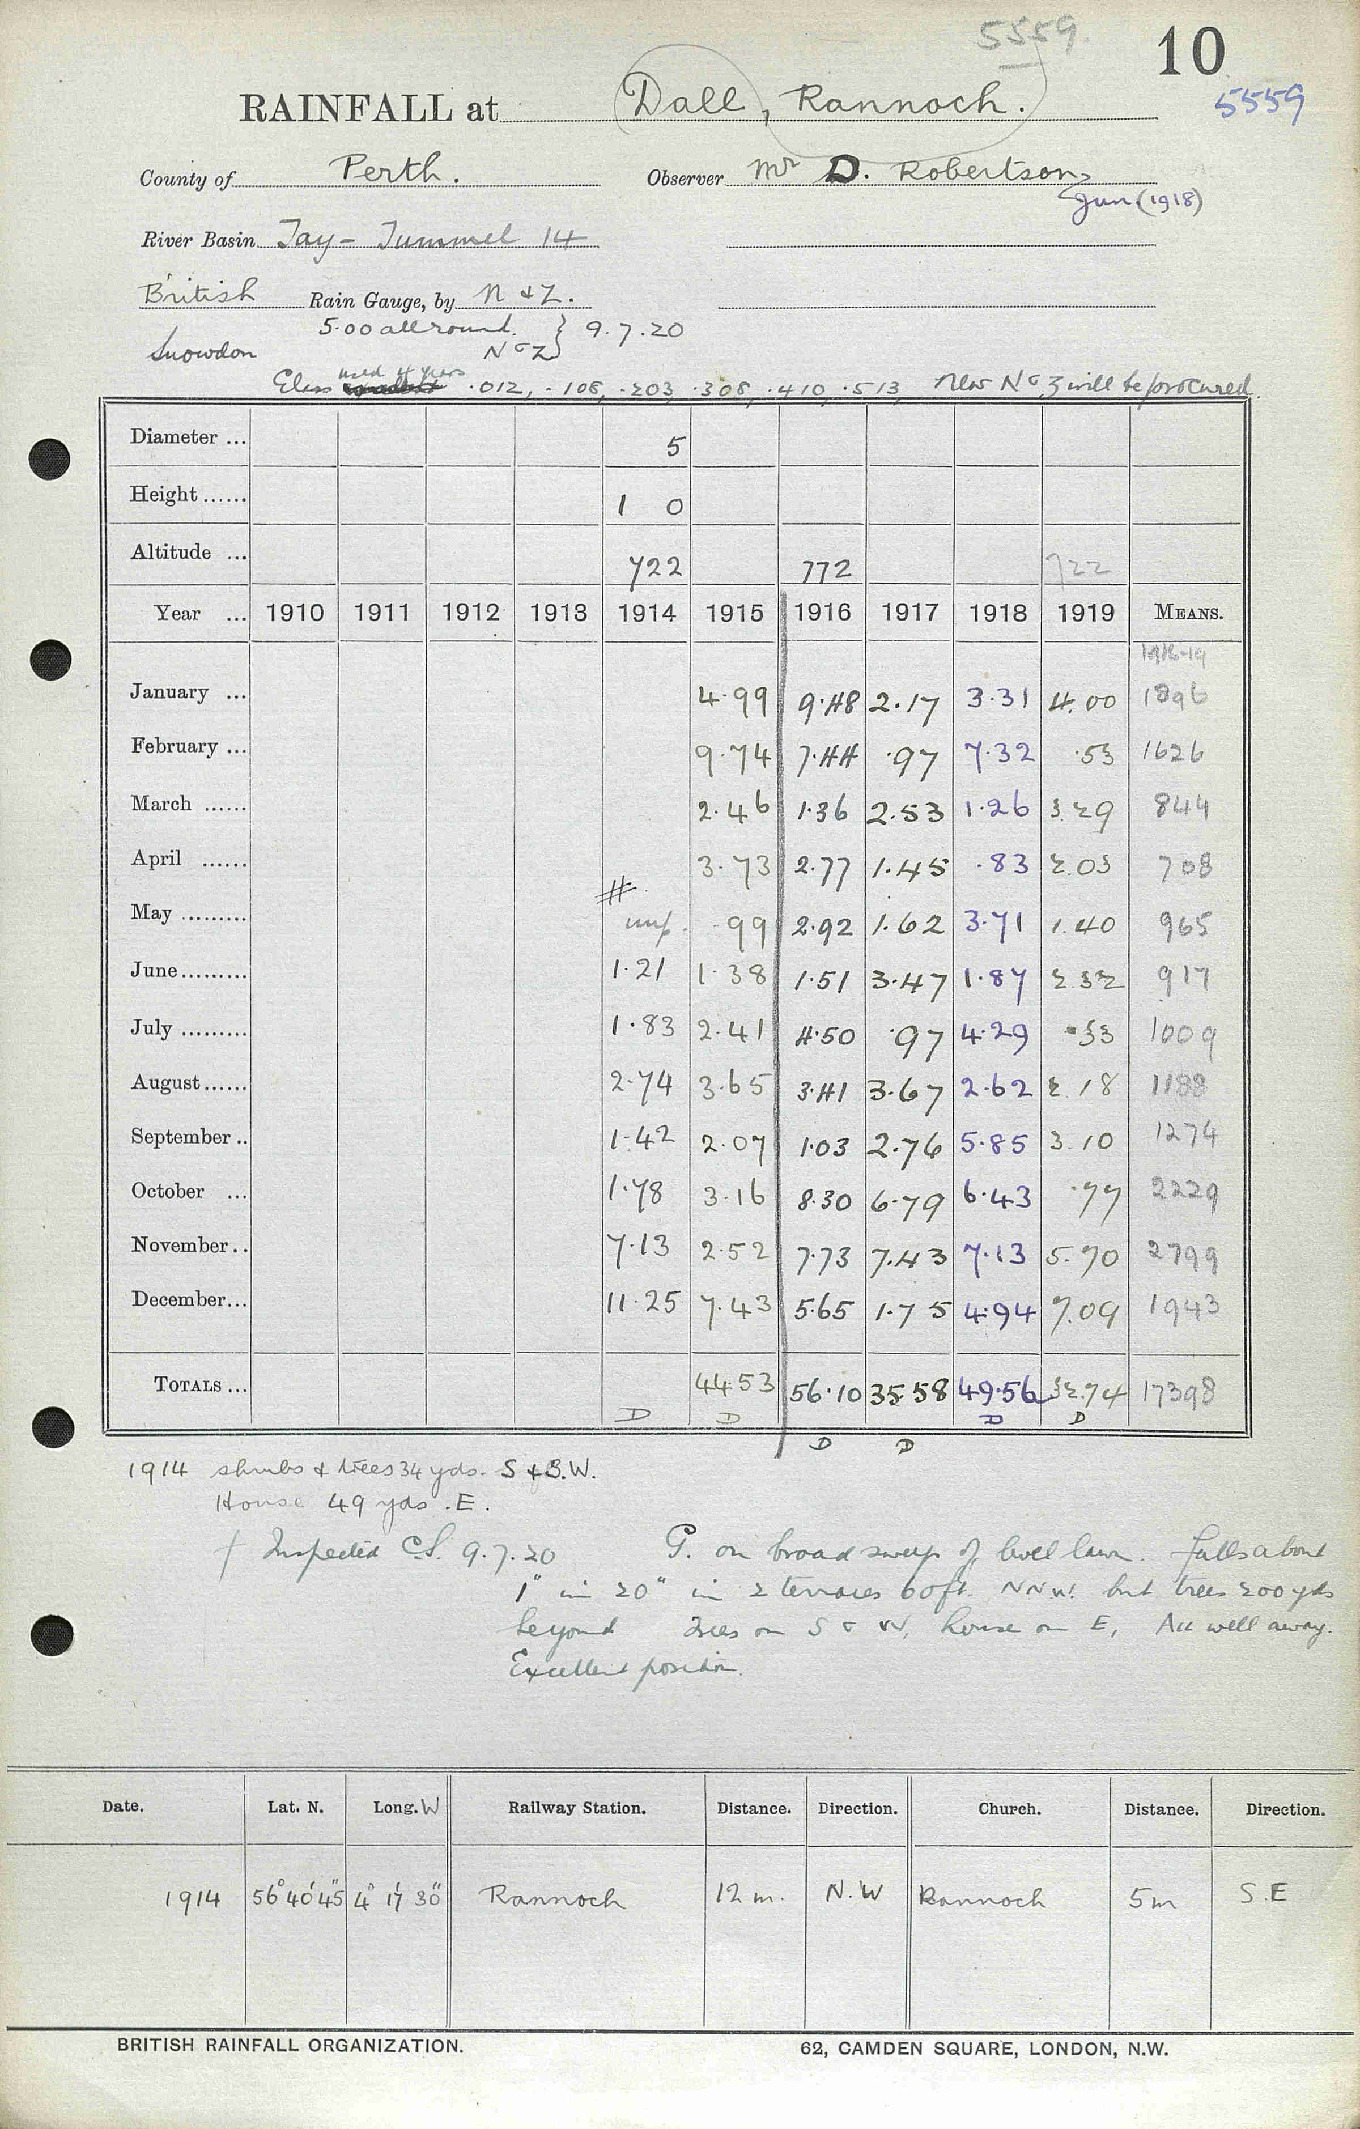 5559. 10
RAINFALL at Dall, Rannoch. 5559
County of Perth. Observer Mr D. Robertson,
Jun (1918)
River Basin Tay - Tummel 14
British Rain Gauge, by N & Z.
5.00 all round. } 9.7.20
Snowdon N & Z
used 4 years
Glass .012, .108, .203, .308, .410, .513, New N & Z will be procured.
Diameter ... 5
Height ...... 1 0
Altitude ... 722 772 722
Year ... 1910 1911 1912 1913 1914 1915 1916 1917 1918 1919 MEANS.
1916-19
January ... 4.99 9.48 2.17 3.31 4.00 1896
February ... 9.74 7.44 .97 7.32 .53 1626
March ...... 2.46 1.36 2.53 1.26 3.29 844
April ...... 3.73 2.77 1.45 .83 2.03 708
May ......... imp. .99 2.92 1.62 3.71 1.40 965
June......... 1.21 1.38 1.51 3.47 1.87 2.32 917
July ......... 1.83 2.41 4.50 .97 4.29 .33 1009
August...... 2.74 3.65 3.41 3.67 2.62 2.18 1188
September.. 1.42 2.07 1.03 2.76 5.85 3.10 1274
October ... 1.78 3.16 8.30 6.79 6.43 .77 2229
November.. 7.13 2.52 7.73 7.43 7.13 5.70 2799
December... 11.25 7.43 5.65 1.75 4.94 7.09 1943
TOTALS ... 44.53 56.10 35.58 49.56 32.74 17398
D D D D
D D
1914 shrubs & trees 34 yds. S & S.W.
House 49 yds. E.
† Inspected C.S. 9.7.20 G. on broad sweep of level lawn. Falls about
1" in 20" in 2 terraces 60ft. NNW. but trees 200 yds
beyond Trees on S & W, house on E, All well away.
Excellent position.
Date. Lat. N. Long. W Railway Station. Distance. Direction. Church. Distance. Direction.
1914 56° 40' 45" 4° 17' 30" Rannoch 12 m. N.W Rannoch 5 m S.E
BRITISH RAINFALL ORGANIZATION. 62, CAMDEN SQUARE, LONDON, N.W.